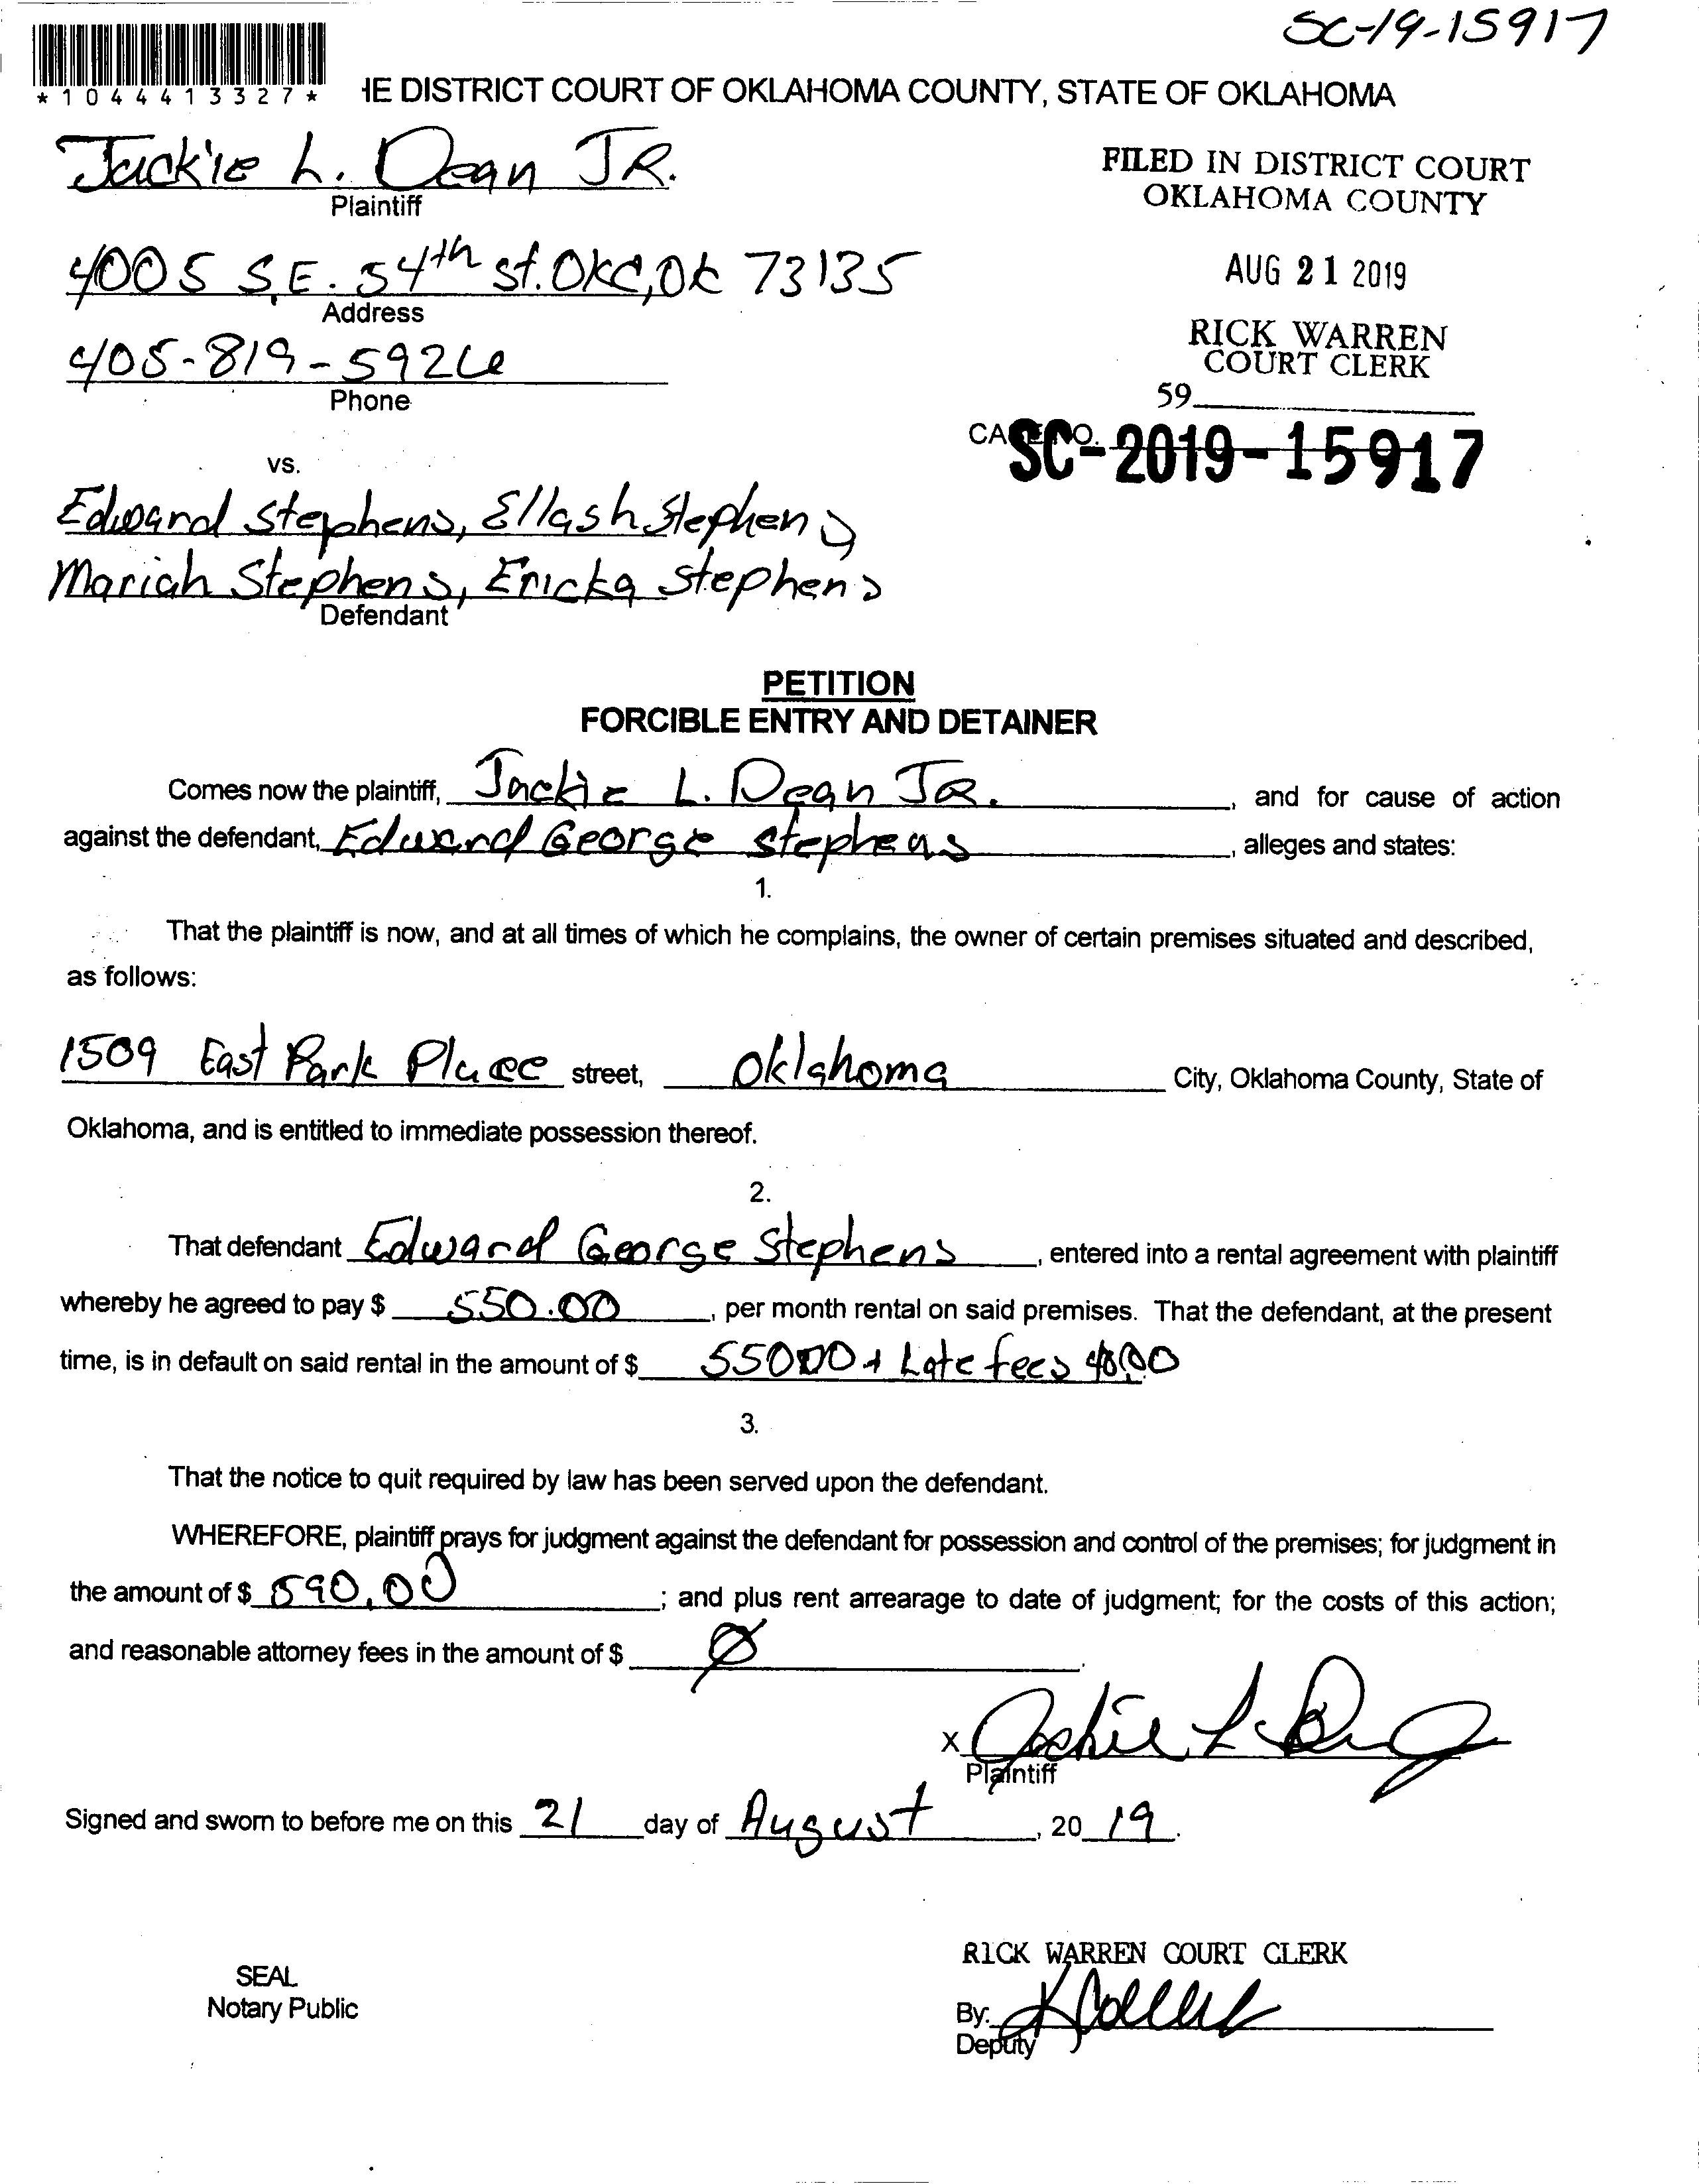 SC-19-15917
*1044413327*
HE DISTRICT COURT OF OKLAHOMA COUNTY, STATE OF OKLAHOMA
Jackie L. Dean JR.
Plaintiff
4005 S.E. 54th st. OKC, OK 73135
Address
405-819-5926
Phone
vs.
Edward Stephens, Ellash Stephens
Mariah Stephens, Ericka Stephens
Defendant
FILED IN DISTRICT COURT
OKLAHOMA COUNTY
AUG 21 2019
RICK WARREN
COURT CLERK
59
CASE NO. SC-2019-15917
PETITION
FORCIBLE ENTRY AND DETAINER
Comes now the plaintiff, Jackie L. Dean JR. , and for cause of action
against the defendant, Edward George Stephens , alleges and states:
1.
That the plaintiff is now, and at all times of which he complains, the owner of certain premises situated and described,
as follows:
1509 East Park Place street, Oklahoma City, Oklahoma County, State of
Oklahoma, and is entitled to immediate possession thereof.
2.
That defendant Edward George Stephens , entered into a rental agreement with plaintiff
whereby he agreed to pay $ 550.00 , per month rental on said premises. That the defendant, at the present
time, is in default on said rental in the amount of $ 550.00 + Late fees 40.00
3.
That the notice to quit required by law has been served upon the defendant.
WHEREFORE, plaintiff prays for judgment against the defendant for possession and control of the premises; for judgment in
the amount of $ 590.00 ; and plus rent arrearage to date of judgment; for the costs of this action;
and reasonable attorney fees in the amount of $ Ø .
X Jackie L Dean Jr
Plaintiff
Signed and sworn to before me on this 21 day of August , 20 19.
SEAL
Notary Public
RICK WARREN COURT CLERK
By:
Deputy